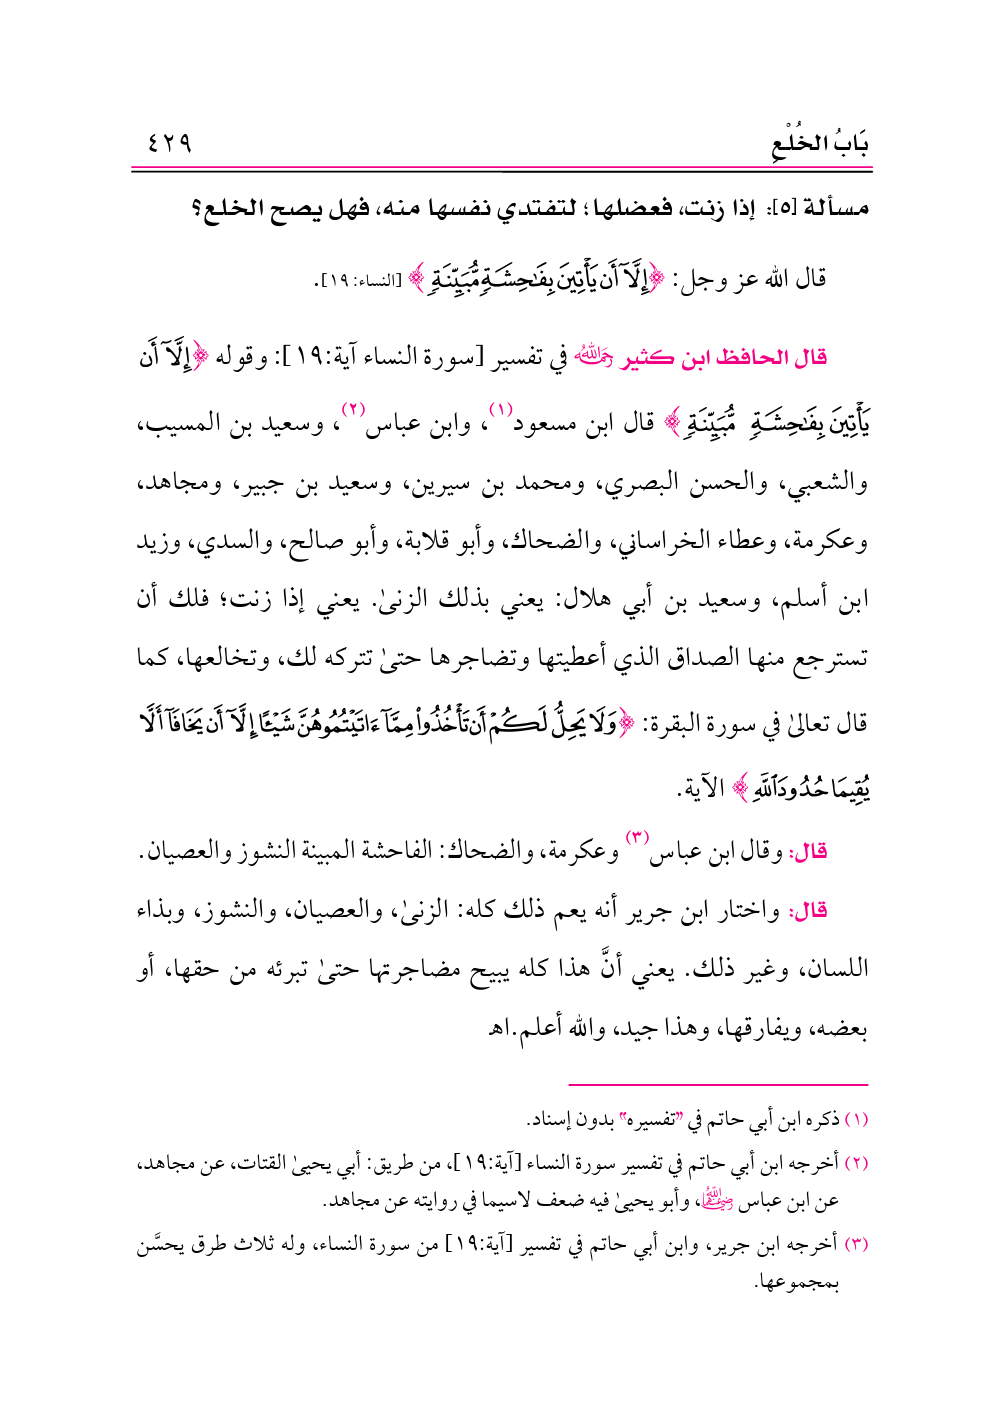 بَابُ الخُلْعِ ٤٢٩
مسألة [٥]: إذا زنت، فعضلها؛ لتفتدي نفسها منه، فهل يصح الخلع؟
قال الله عز وجل: ﴿إِلَّآ أَن يَأْتِينَ بِفَٰحِشَةٖ مُّبَيِّنَةٖ﴾ [النساء: ١٩].
قال الحافظ ابن كثير رَحِمَهُ اللَّهُ في تفسير [سورة النساء آية:١٩]: وقوله ﴿إِلَّآ أَن
يَأْتِينَ بِفَٰحِشَةٖ مُّبَيِّنَةٖ﴾ قال ابن مسعود(١)، وابن عباس(٢)، وسعيد بن المسيب،
والشعبي، والحسن البصري، ومحمد بن سيرين، وسعيد بن جبير، ومجاهد،
وعكرمة، وعطاء الخراساني، والضحاك، وأبو قلابة، وأبو صالح، والسدي، وزيد
ابن أسلم، وسعيد بن أبي هلال: يعني بذلك الزنىٰ. يعني إذا زنت؛ فلك أن
تسترجع منها الصداق الذي أعطيتها وتضاجرها حتىٰ تتركه لك، وتخالعها، كما
قال تعالىٰ في سورة البقرة: ﴿وَلَا يَحِلُّ لَكُمۡ أَن تَأۡخُذُواْ مِمَّآ ءَاتَيۡتُمُوهُنَّ شَيۡـًٔا إِلَّآ أَن يَخَافَآ أَلَّا
يُقِيمَا حُدُودَ ٱللَّهِ﴾ الآية.
قال: وقال ابن عباس(٣) وعكرمة، والضحاك: الفاحشة المبينة النشوز والعصيان.
قال: واختار ابن جرير أنه يعم ذلك كله: الزنىٰ، والعصيان، والنشوز، وبذاء
اللسان، وغير ذلك. يعني أنَّ هذا كله يبيح مضاجرتها حتىٰ تبرئه من حقها، أو
بعضه، ويفارقها، وهذا جيد، والله أعلم.اهـ
(١) ذكره ابن أبي حاتم في "تفسيره" بدون إسناد.
(٢) أخرجه ابن أبي حاتم في تفسير سورة النساء [آية:١٩]، من طريق: أبي يحيىٰ القتات، عن مجاهد،
عن ابن عباس رَضِيَ اللَّهُ عَنْهُمَا، وأبو يحيىٰ فيه ضعف لاسيما في روايته عن مجاهد.
(٣) أخرجه ابن جرير، وابن أبي حاتم في تفسير [آية:١٩] من سورة النساء، وله ثلاث طرق يحسَّن
بمجموعها.